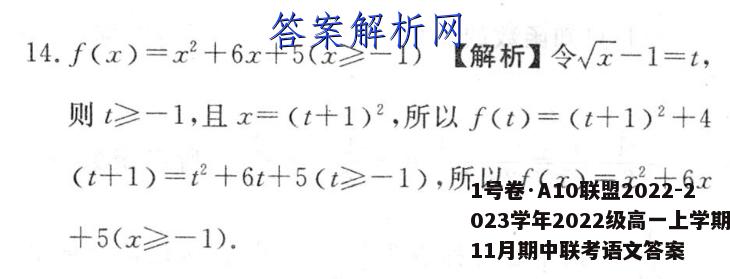 答案解析网
14. f(x)=x²+6x+5(x≥-1) 【解析】令√x-1=t,
则 t≥-1,且 x=(t+1)²,所以 f(t)=(t+1)²+4
(t+1)=t²+6t+5(t≥-1),所以 f(x)=x²+6x
+5(x≥-1).
1号卷·A10联盟2022-2
023学年2022级高一上学期
11月期中联考语文答案